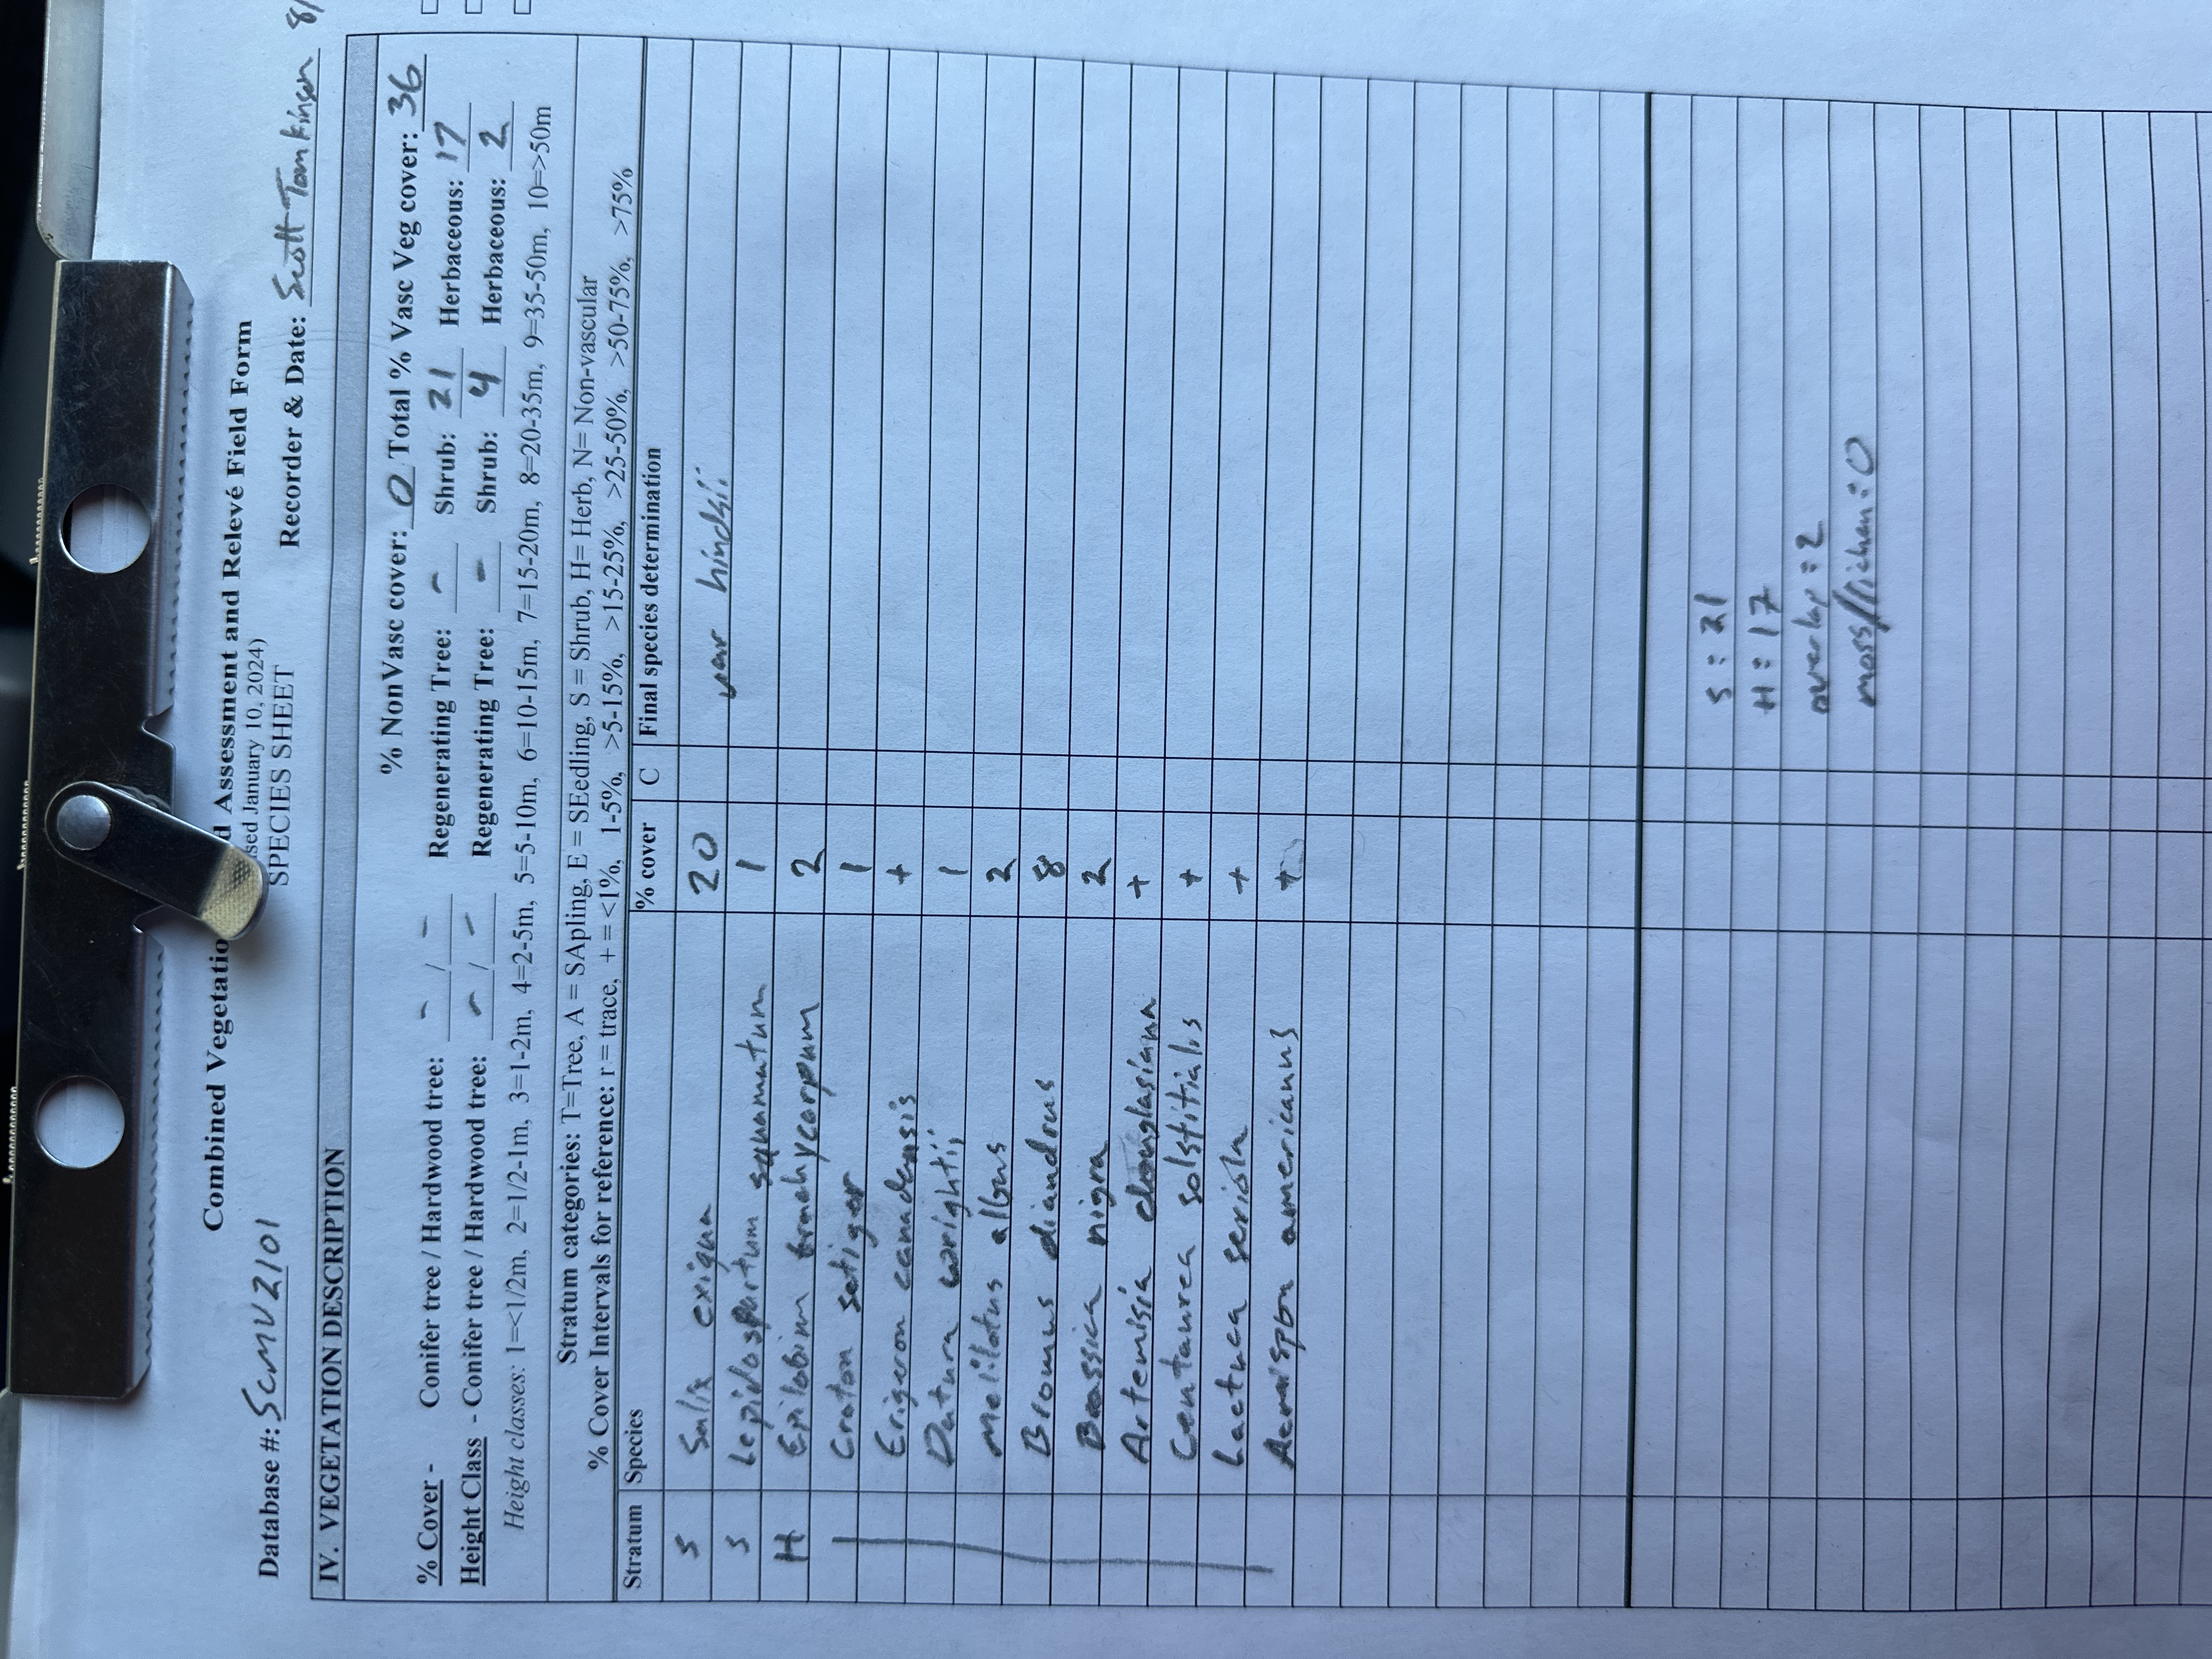 Combined Vegetatio d Assessment and Relevé Field Form
sed January 10, 2024)
SPECIES SHEET
Database #: SCMV2101 Recorder & Date: Scott Tomkinson 8/
IV. VEGETATION DESCRIPTION
% NonVasc cover: 0 Total % Vasc Veg cover: 36
% Cover - Conifer tree / Hardwood tree: - / - Regenerating Tree: - Shrub: 21 Herbaceous: 17
Height Class - Conifer tree / Hardwood tree: - / - Regenerating Tree: - Shrub: 4 Herbaceous: 2
Height classes: 1=<1/2m, 2=1/2-1m, 3=1-2m, 4=2-5m, 5=5-10m, 6=10-15m, 7=15-20m, 8=20-35m, 9=35-50m, 10=>50m
Stratum categories: T=Tree, A = SApling, E = SEedling, S = Shrub, H= Herb, N= Non-vascular
% Cover Intervals for reference: r = trace, + = <1%, 1-5%, >5-15%, >15-25%, >25-50%, >50-75%, >75%
Stratum Species % cover C Final species determination
S Salix exigua 20 var hindsii
S Lepidospartum squamatum 1
H Epilobium brachycarpum 2
Croton setiger 1
Erigeron canadensis +
Datura wrightii 1
Melilotus albus 2
Bromus diandrous 8
Brassica nigra 2
Artemisia douglasiana +
Centaurea solstitialis +
Lactuca seriola +
Acmispon americanus +
S: 21
H: 17
overlap: 2
moss/lichen: 0